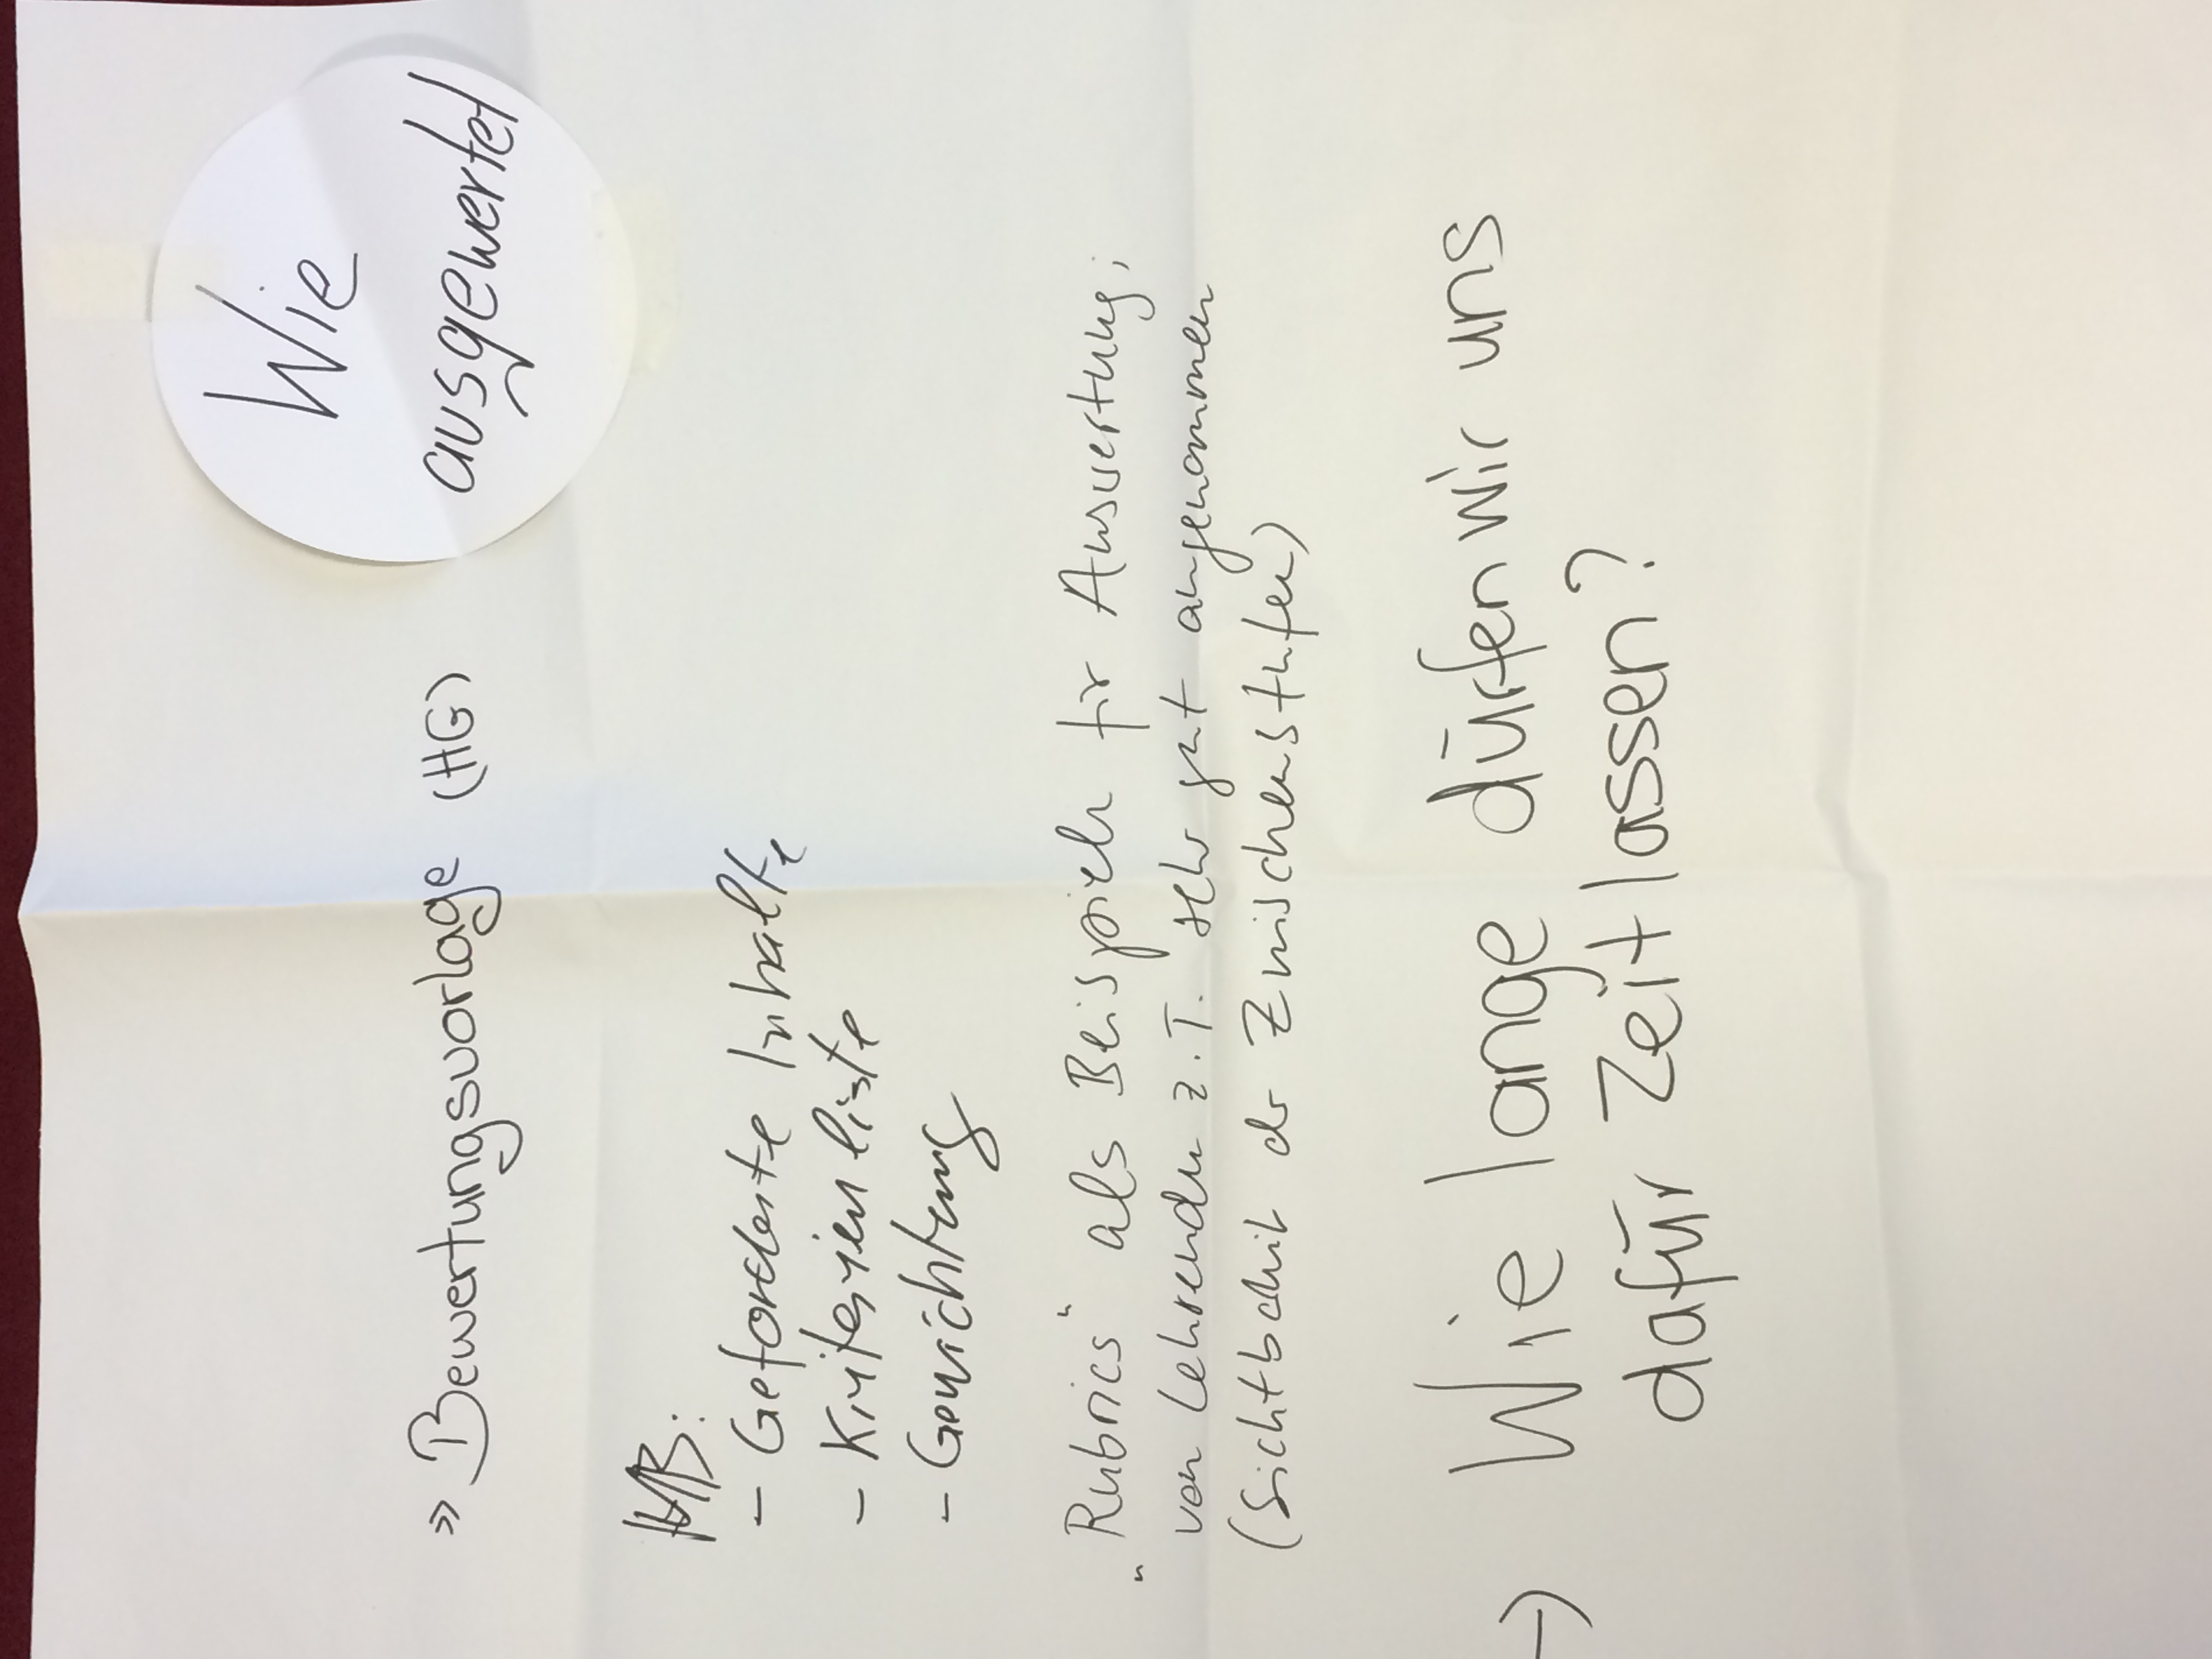 Wie
ausgewertet
» Bewertungsvorlage (HG)
HB:
- Geforderte Inhalte
- Kriterienliste
- Gewichtung
„Rubrics“ als Beispiele für Auswertung;
von Lehrenden z.T. sehr gut angenommen
(Sichtbarkeit der Zwischenstufen)
→ Wie lange dürfen wir uns
dafür Zeit lassen?